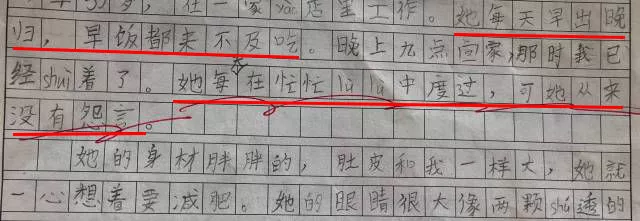 岁，在一家yao店里工作。她每天早出晚
归，早饭都来不及吃。晚上九点回家,那时我已
经shui着了。她每在忙忙lu lu中度过，可她从来
没有怨言。
她的身材胖胖的，肚皮和我一样大，她就
一心想着要减肥。她的眼睛很大像两颗shu透的